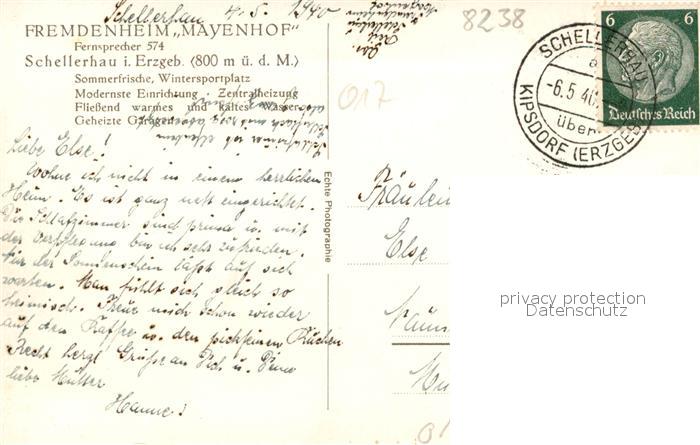 Schellerhau 4.5.1940
8238
FREMDENHEIM „MAYENHOF"
Fernsprecher 574
Schellerhau i. Erzgeb. (800 m ü. d. M.)
Sommerfrische, Wintersportplatz
Modernste Einrichtung · Zentralheizung
Fließend warmes und kaltes Wasser
Geheizte Garagen
017
SCHELLERHAU
a
-6.5.40
über
KIPSDORF (ERZGEB.)
6 6
Deutsches Reich
Liebe Else!
Wohne ich nicht in einem herrlichen
Heim. Es ist ganz nett eingerichtet.
Die Schlafzimmer sind prima u. mit
der Verpflegung bin ich sehr zufrieden.
Nur der Sonnenschein läßt auf sich
warten. Man fühlt sich gleich so
heimisch. Freue mich schon wieder
auf den Kaffee u. den pickfeinen Kuchen
Recht herzl. Grüße an Dich u. Deine
liebe Mutter
Hanne!
Echte Photographie
Fräulein
Else
privacy protection
Datenschutz